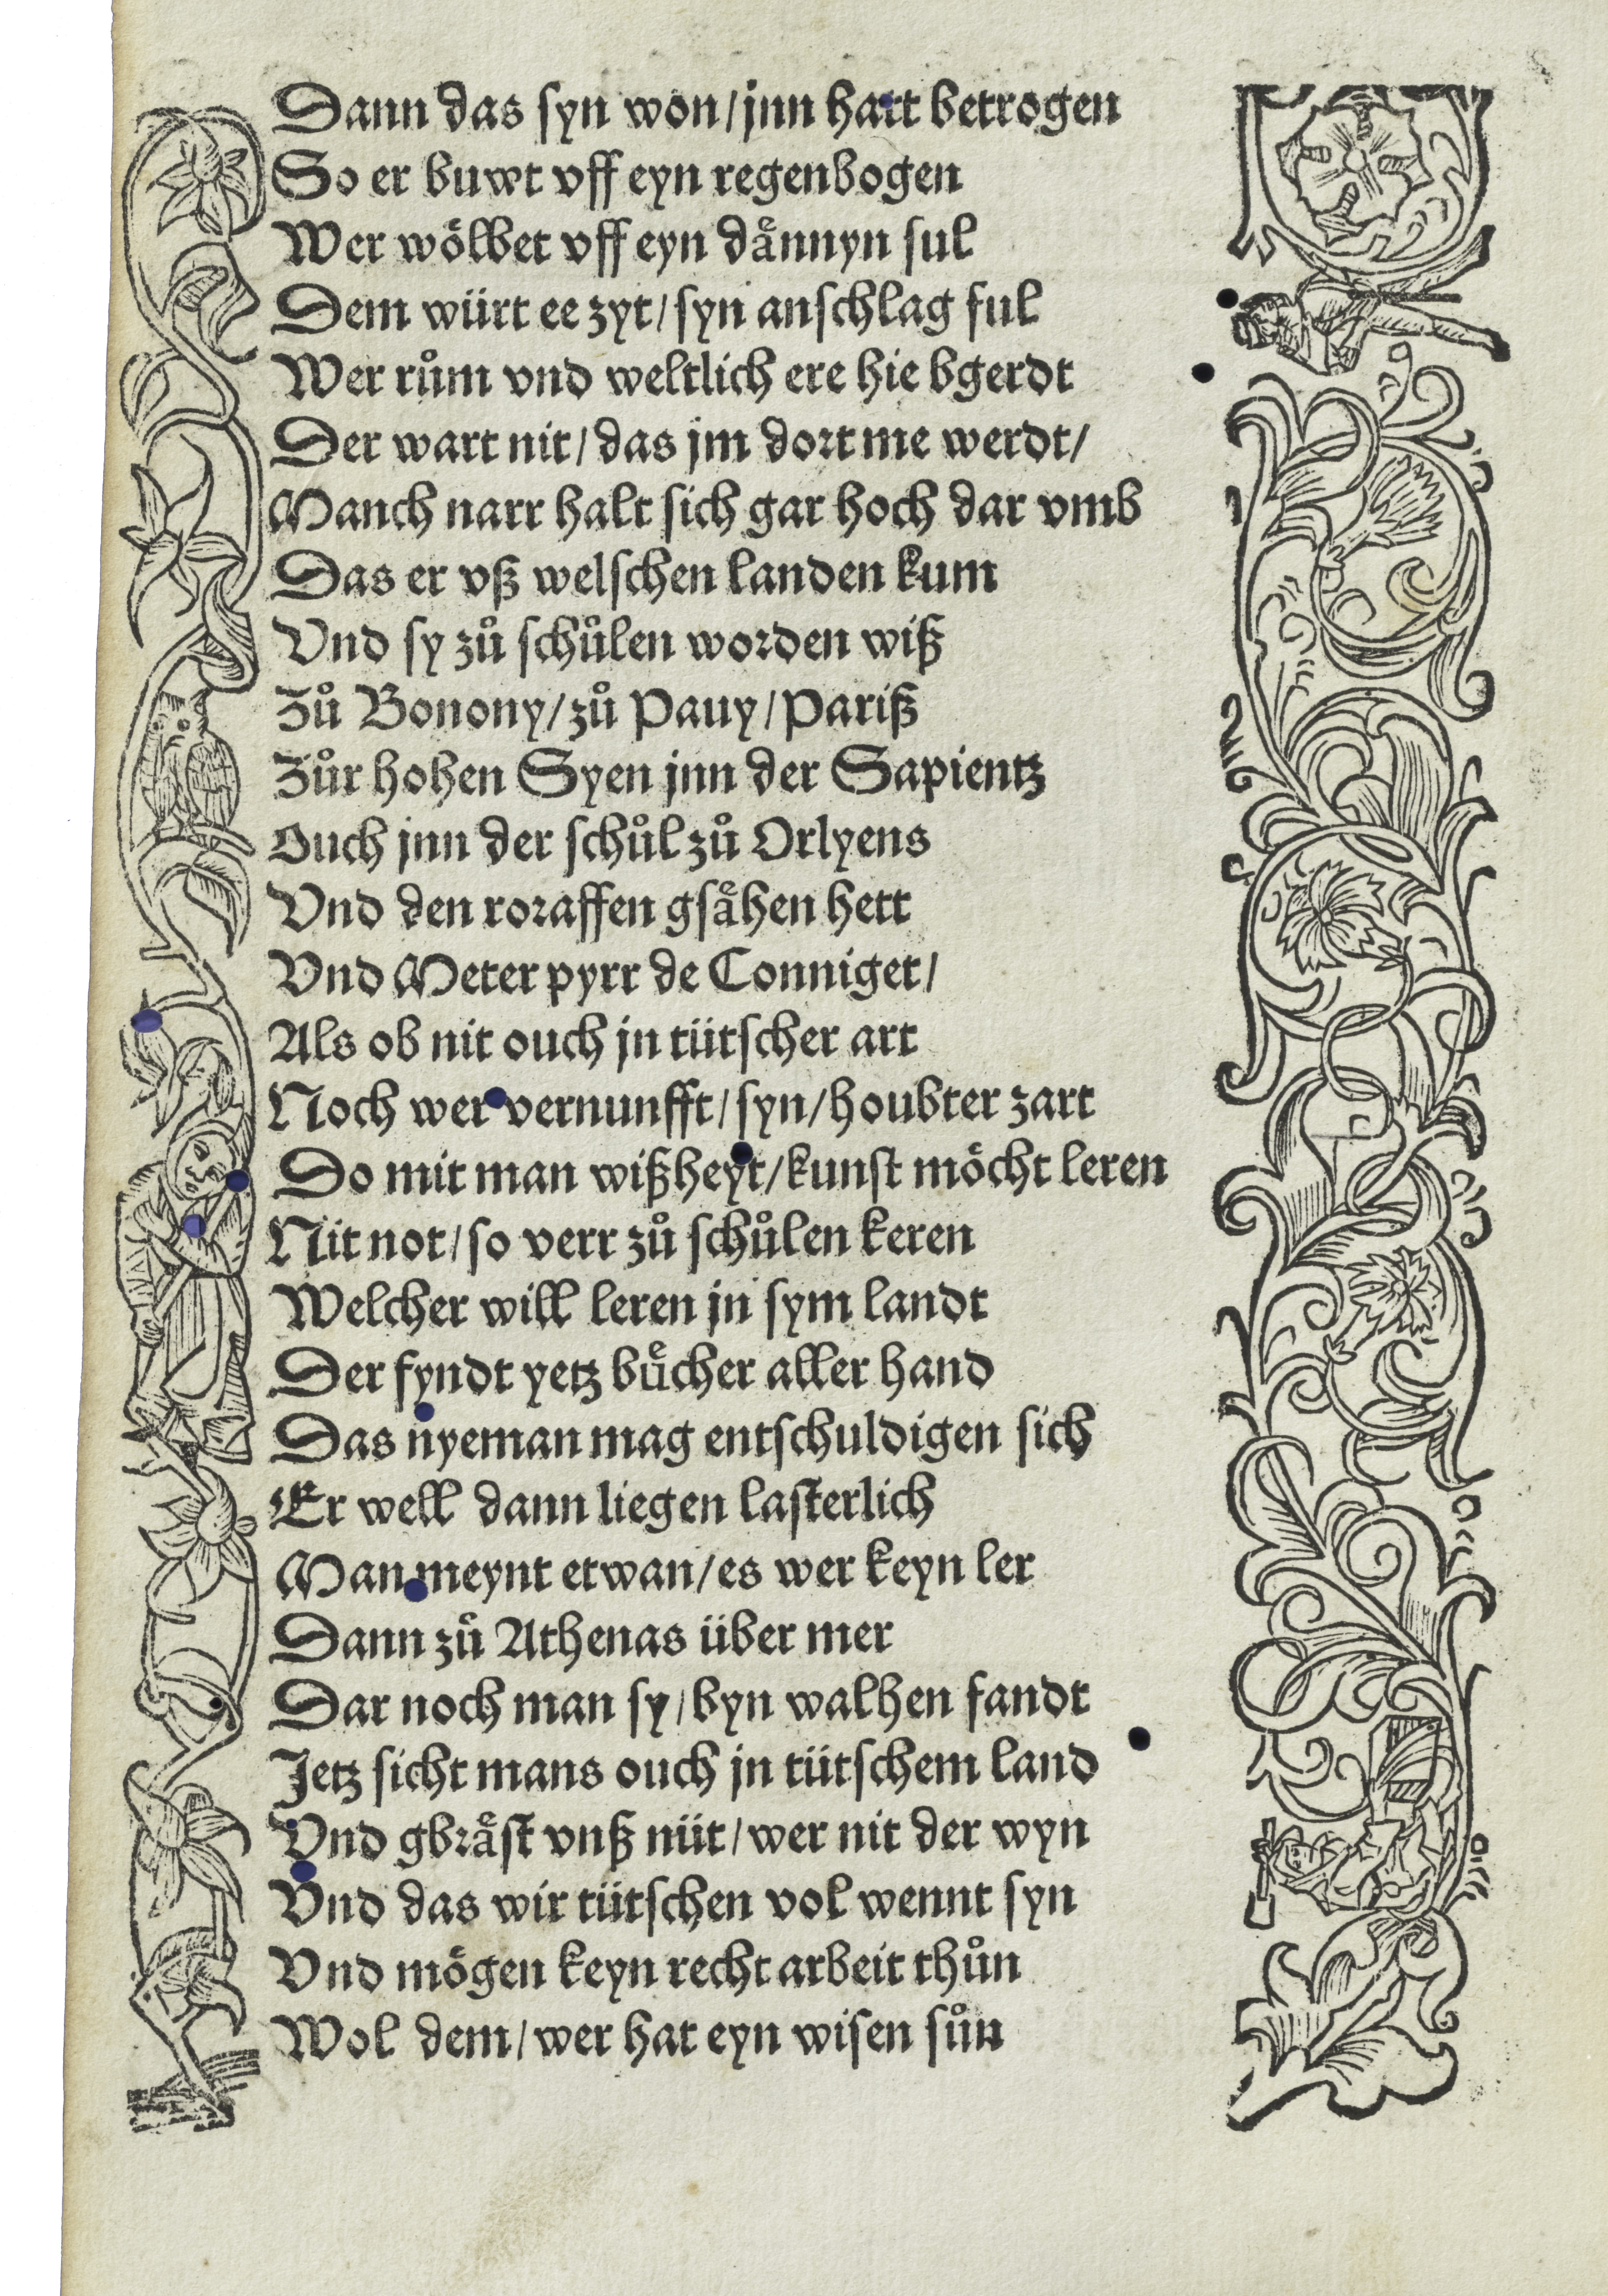 Dann das syn won/jnn hatt betrogen
So er buwt vff eyn regenbogen
Wer woͤlbet vff eyn daͤnnyn sul
Dem würt ee zyt/syn anschlag ful
Wer ruͦm vnd weltlich ere hie bgerdt
Der wart nit/das jm dort me werdt/
Manch narr halt sich gar hoch dar vmb
Das er vß welschen landen kum
Vnd sy zuͦ schuͦlen worden wiß
Zuͦ Bonony/zuͦ Pauy/Pariß
Zuͦr hohen Syen jnn der Sapientz
Ouch jnn der schuͦl zuͦ Orlyens
Vnd den roraffen gsaͤhen hett
Vnd Meter pyrr de Conniget/
Als ob nit ouch jn tütscher art
Noch wer vernunfft/syn/houbter zart
Do mit man wißheyt/kunst moͤcht leren
Nit not/so verr zuͦ schuͦlen keren
Welcher will leren jn sym landt
Der fyndt yetz buͤcher aller hand
Das nyeman mag entschuldigen sich
Er well dann liegen lasterlich
Man meynt etwan/es wer keyn ler
Dann zuͦ Athenas über mer
Dar noch man sy/byn walhen fandt
Jetz sicht mans ouch jn tütschem land
Vnd gbraͤst vnß nüt/wer nit der wyn
Vnd das wir tütschen vol wennt syn
Vnd moͤgen keyn recht arbeit thuͦn
Wol dem/wer hat eyn wisen suͦn